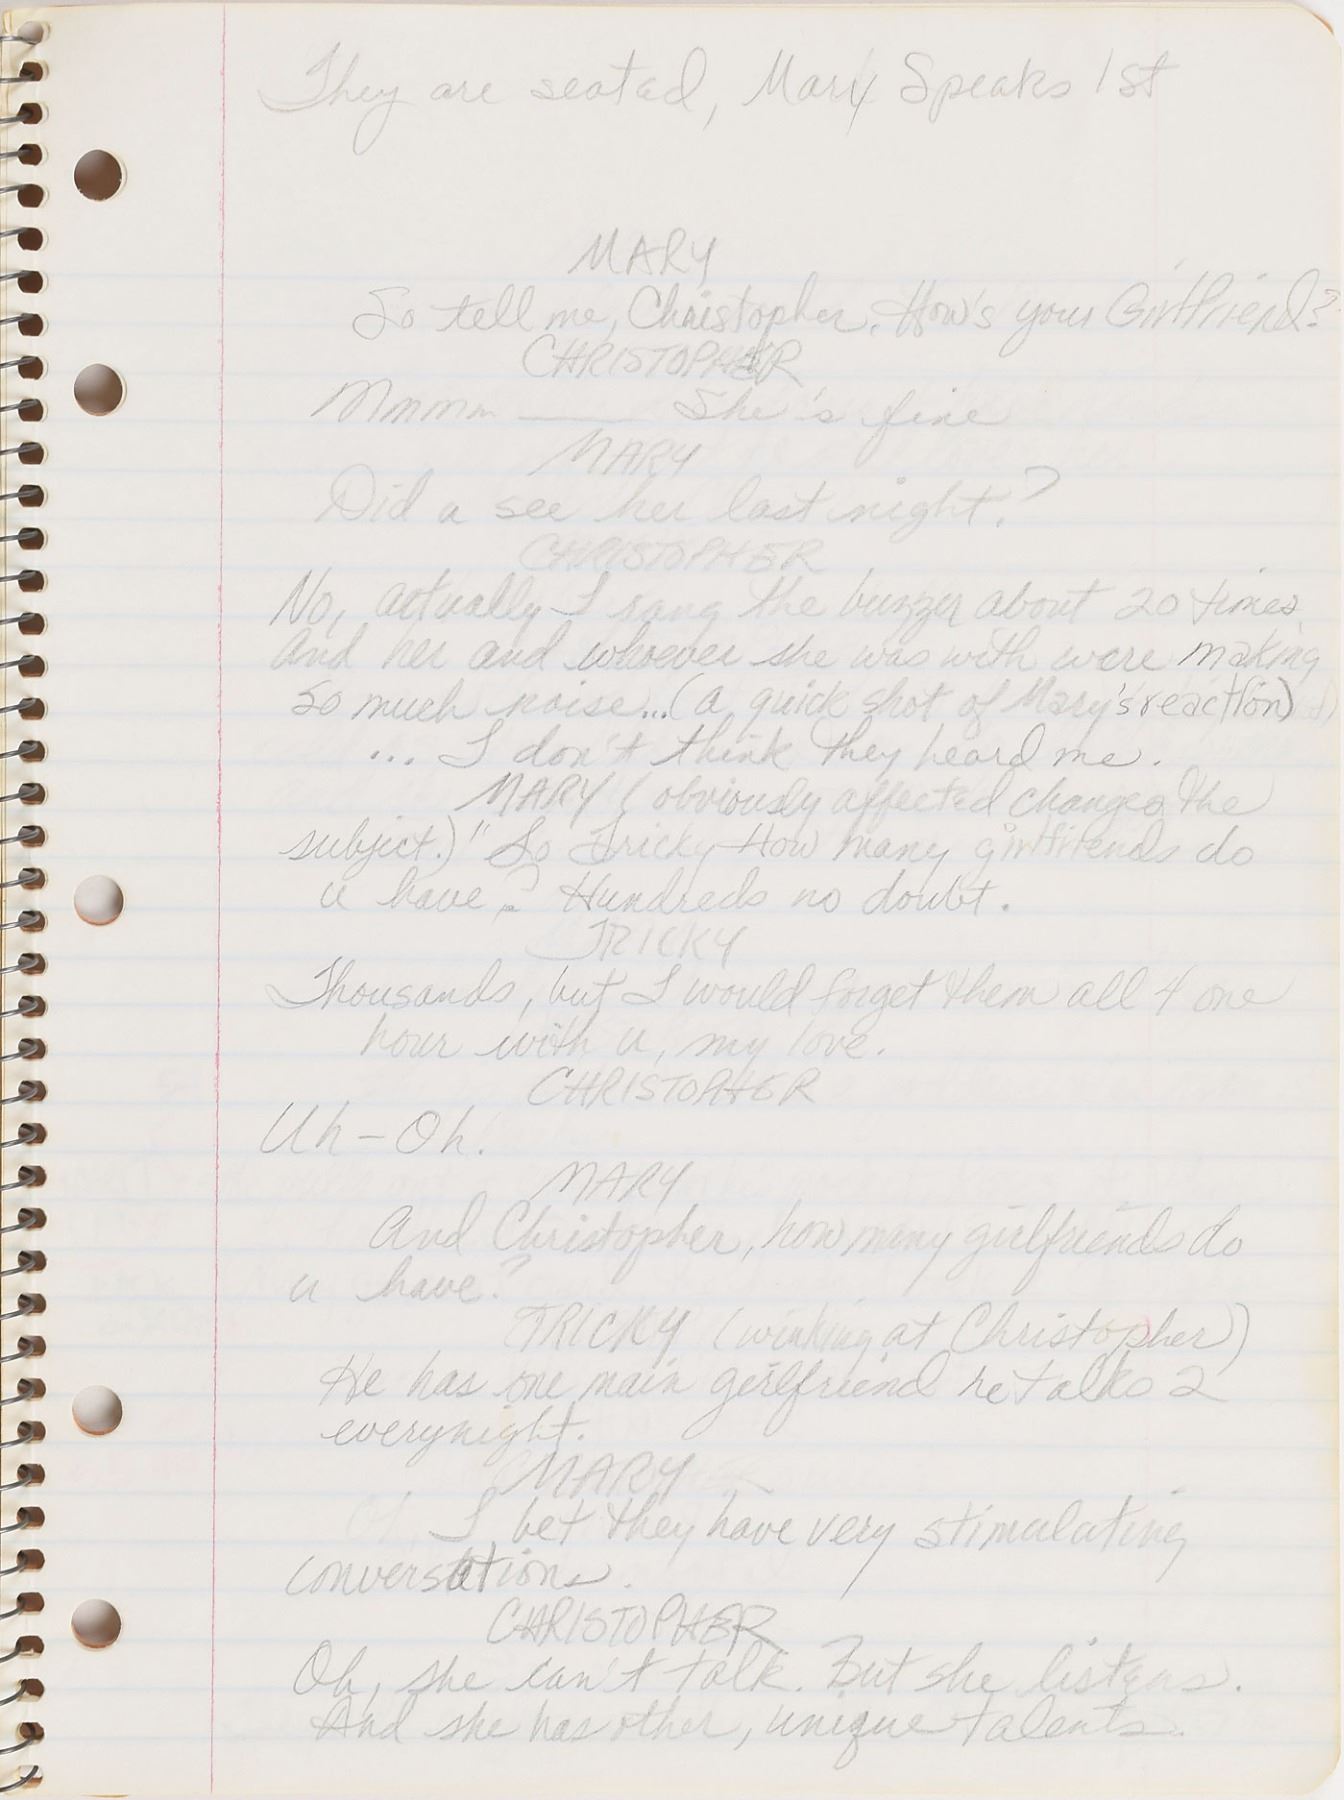 They are seated, Mary Speaks 1st
MARY
So tell me, Christopher. How's your Girlfriend?
CHRISTOPHER
Mmmm —— She's fine
MARY
Did a see her last night?
CHRISTOPHER
No, actually I rang the buzzer about 20 times
And her and whoever she was with were making
so much noise...(a quick shot of Mary's reaction)
... I don't think they heard me.
MARY (obviously affected changes the
subject.) "So Tricky How many girlfriends do
u have? Hundreds no doubt.
TRICKY
Thousands, but I would forget them all 4 one
hour with u, my love.
CHRISTOPHER
Uh-Oh.
MARY
And Christopher, how many girlfriends do
u have?
TRICKY (winking at Christopher)
He has one main girlfriend he talks 2
everynight.
MARY
Oh, I bet they have very stimulating
conversations.
CHRISTOPHER
Oh, she can't talk. But she listens.
And she has other, unique talents.